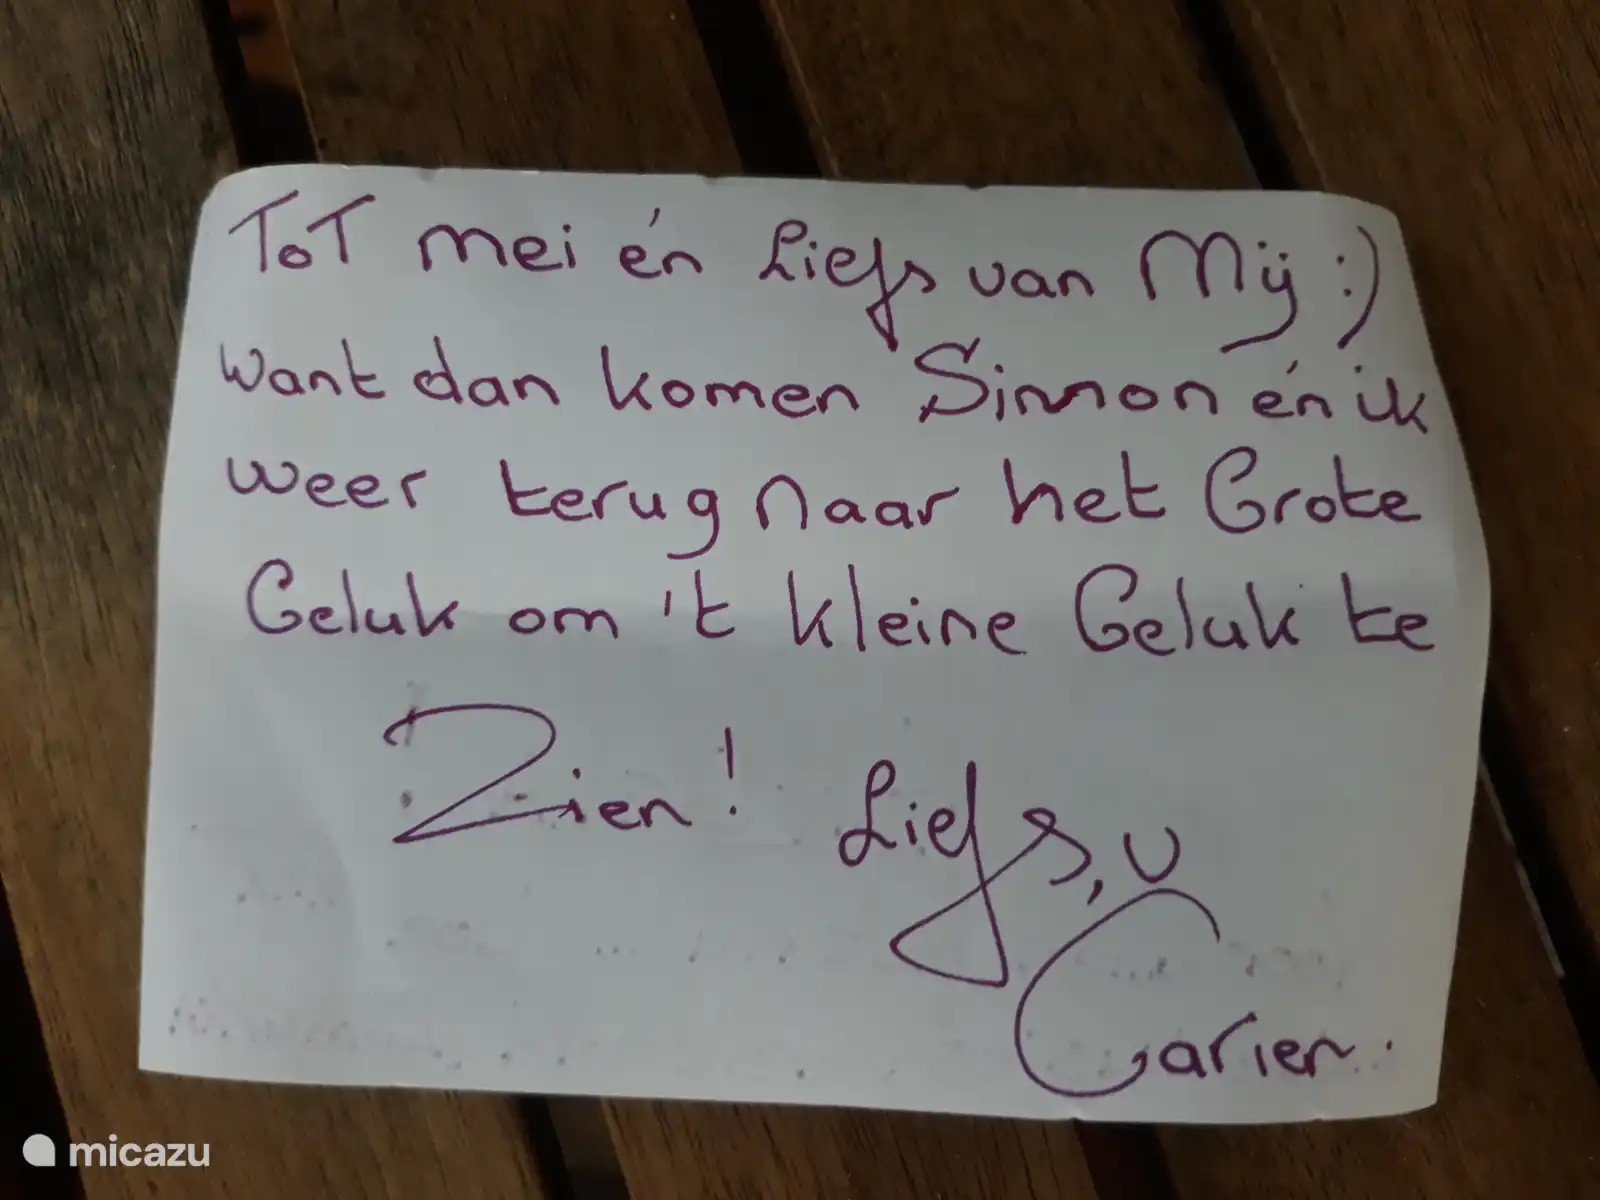 ToT mei én Liefs van Mij :)
want dan komen Simon én ik
weer terug naar het Grote
Geluk om 't kleine Geluk te
Zien! Liefs, v
Carien.
micazu